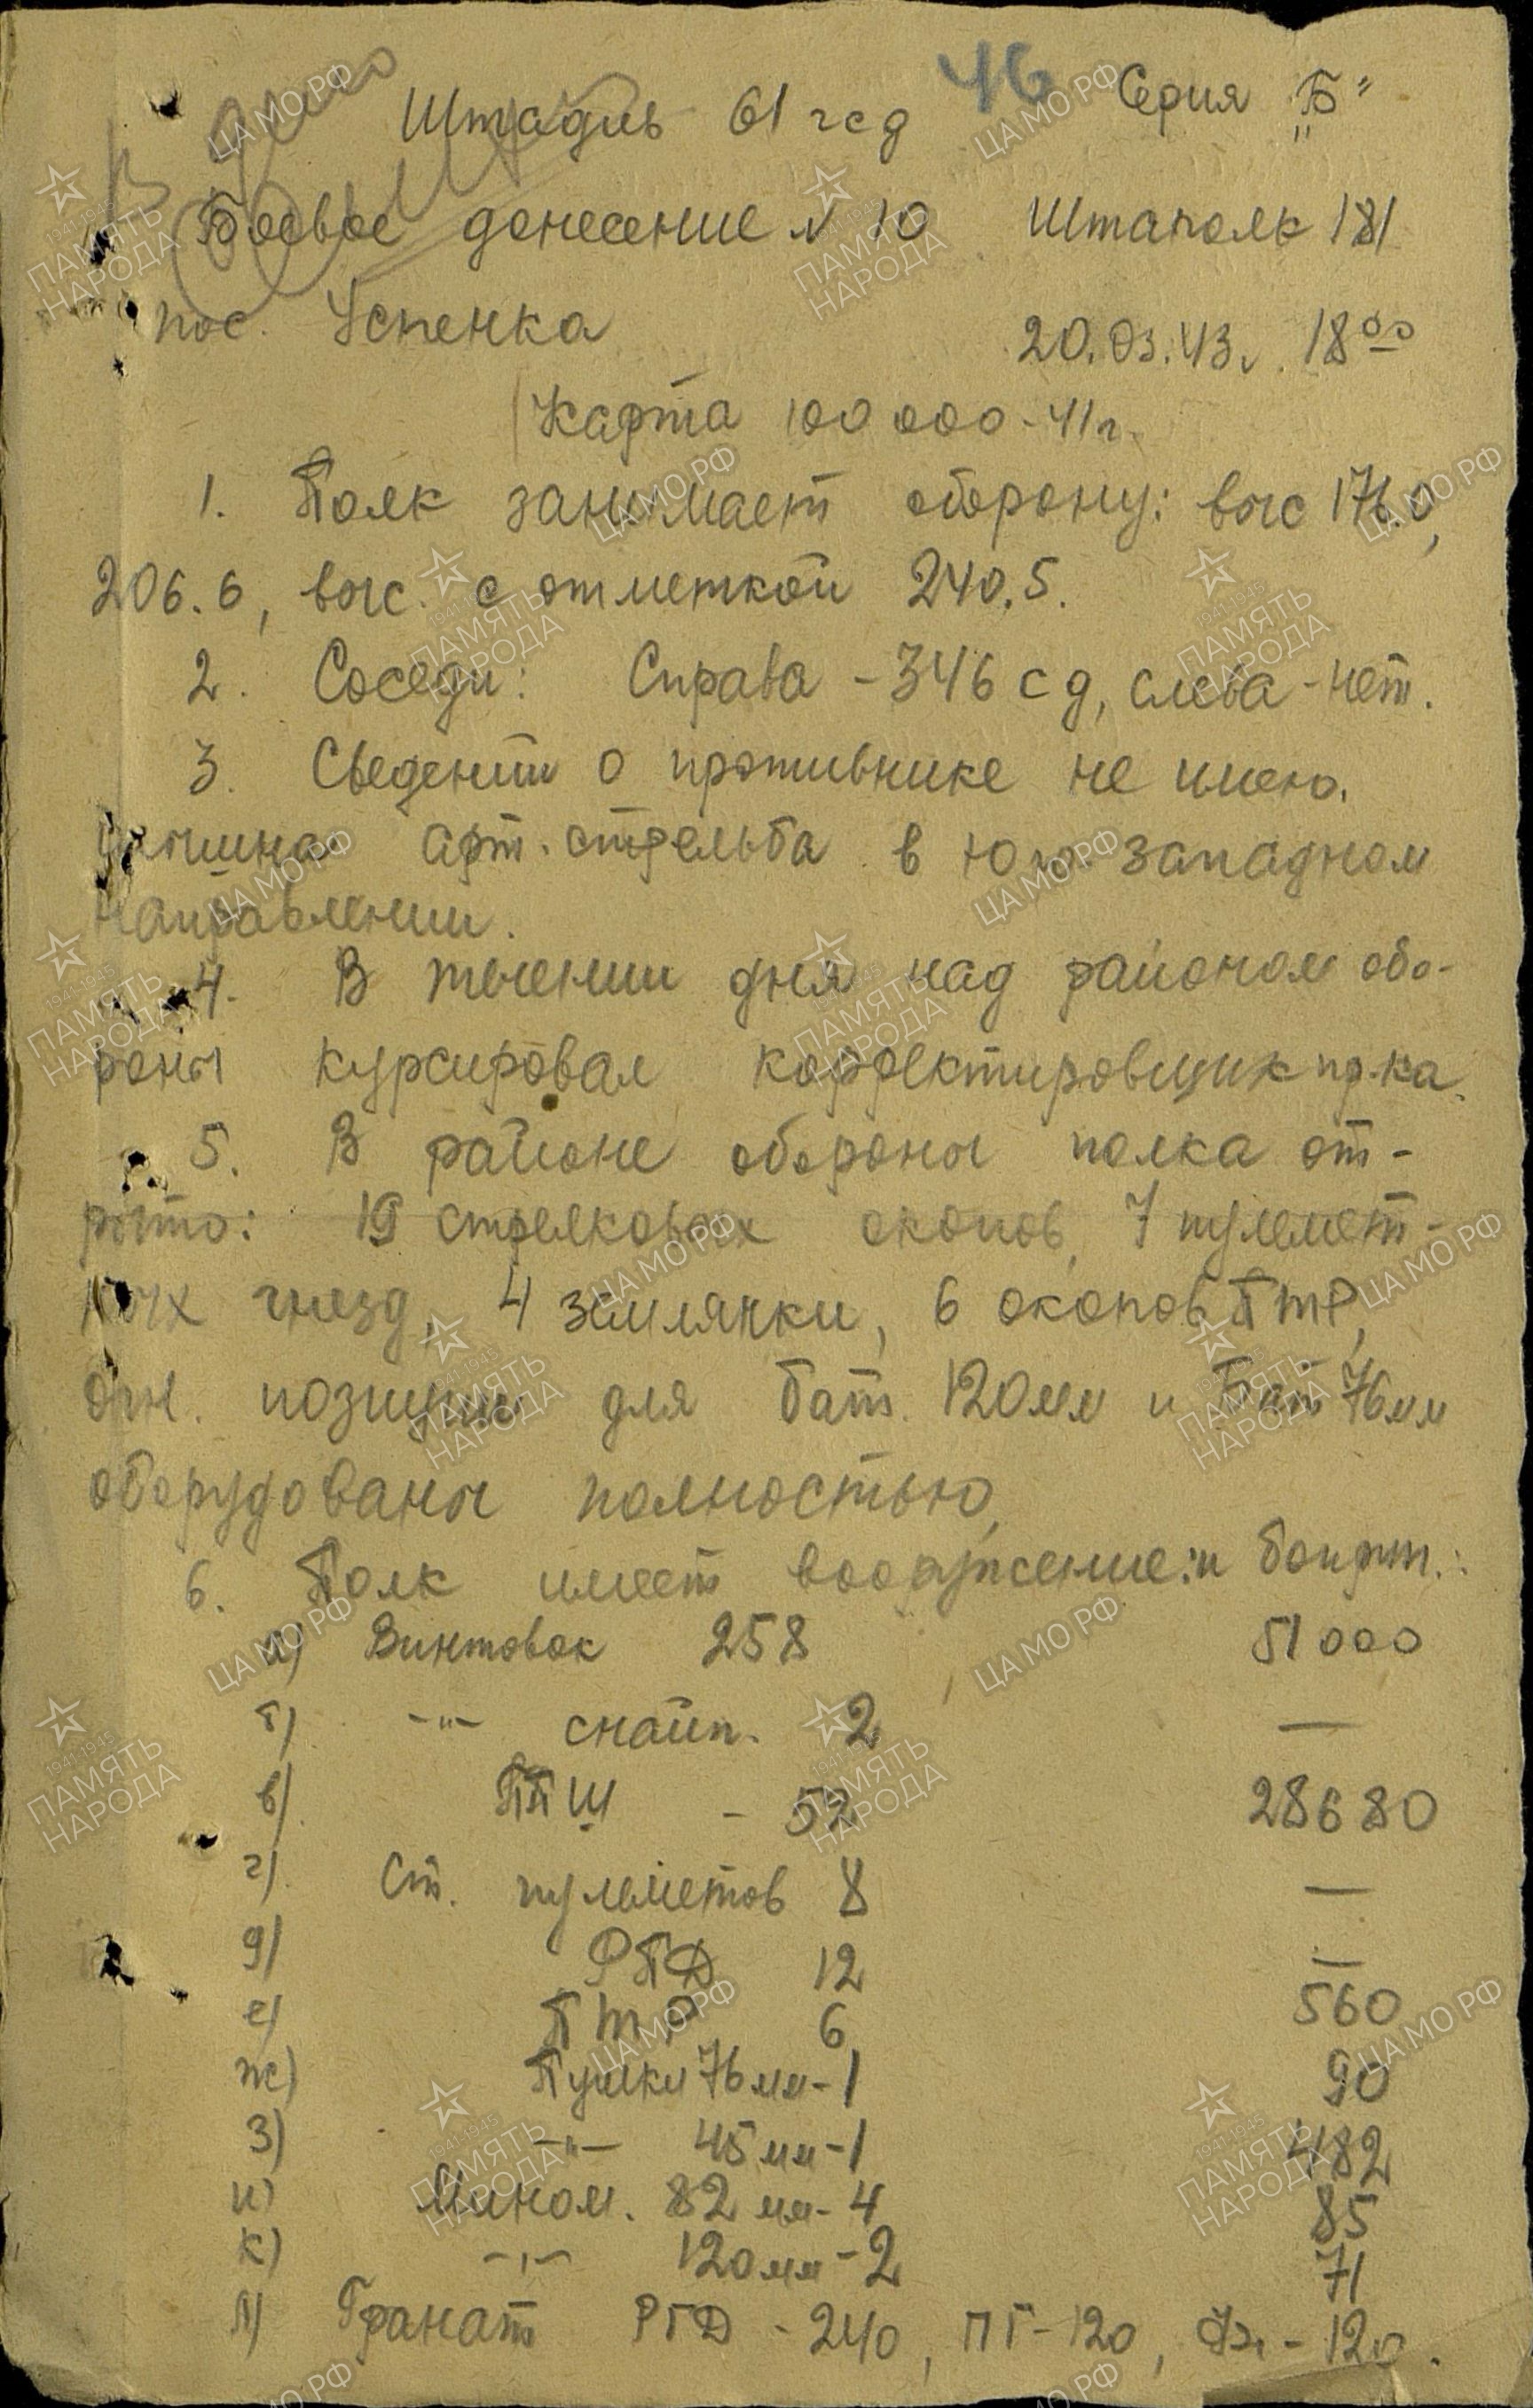 46
Штадив 61 гсд Серия „Б"
Боевое донесение № 10 Штаполк 181
пос. Успенка 20.03.43г. 18 00
Карта 100 000 - 41г.
1. Полк занимает оборону: выс 176.0,
206.6, выс. с отметкой 240.5.
2. Соседи: Справа - 346 сд, слева - нет.
3. Сведений о противнике не имею.
Слышна арт. стрельба в юго-западном
направлении.
4. В течении дня над районом обо-
роны курсировал корректировщик пр-ка.
5. В районе обороны полка от-
рыто: 19 стрелковых окопов, 7 пулемет-
ных гнезд, 4 землянки, 6 окопов ПТР,
огн. позиции для бат. 120мм и Бат 76мм
оборудованы полностью,
6. Полк имеет вооружение: и боипит.:
а) Винтовок 258 51000
б) -"- снайп. 2 —
в) ППШ - 52 28680
г) Ст. пулеметов 8 —
д) РПД 12 —
е) ПТР 6 560
ж) Пушки 76мм - 1 90
з) -"- 45мм - 1 482
и) Мином. 82мм - 4 85
к) -"- 120мм - 2 71
л) Гранат РГД - 240, ПГ - 120, Ф1 - 120.
ЦА МО РФ
ПАМЯТЬ НАРОДА
1941-1945